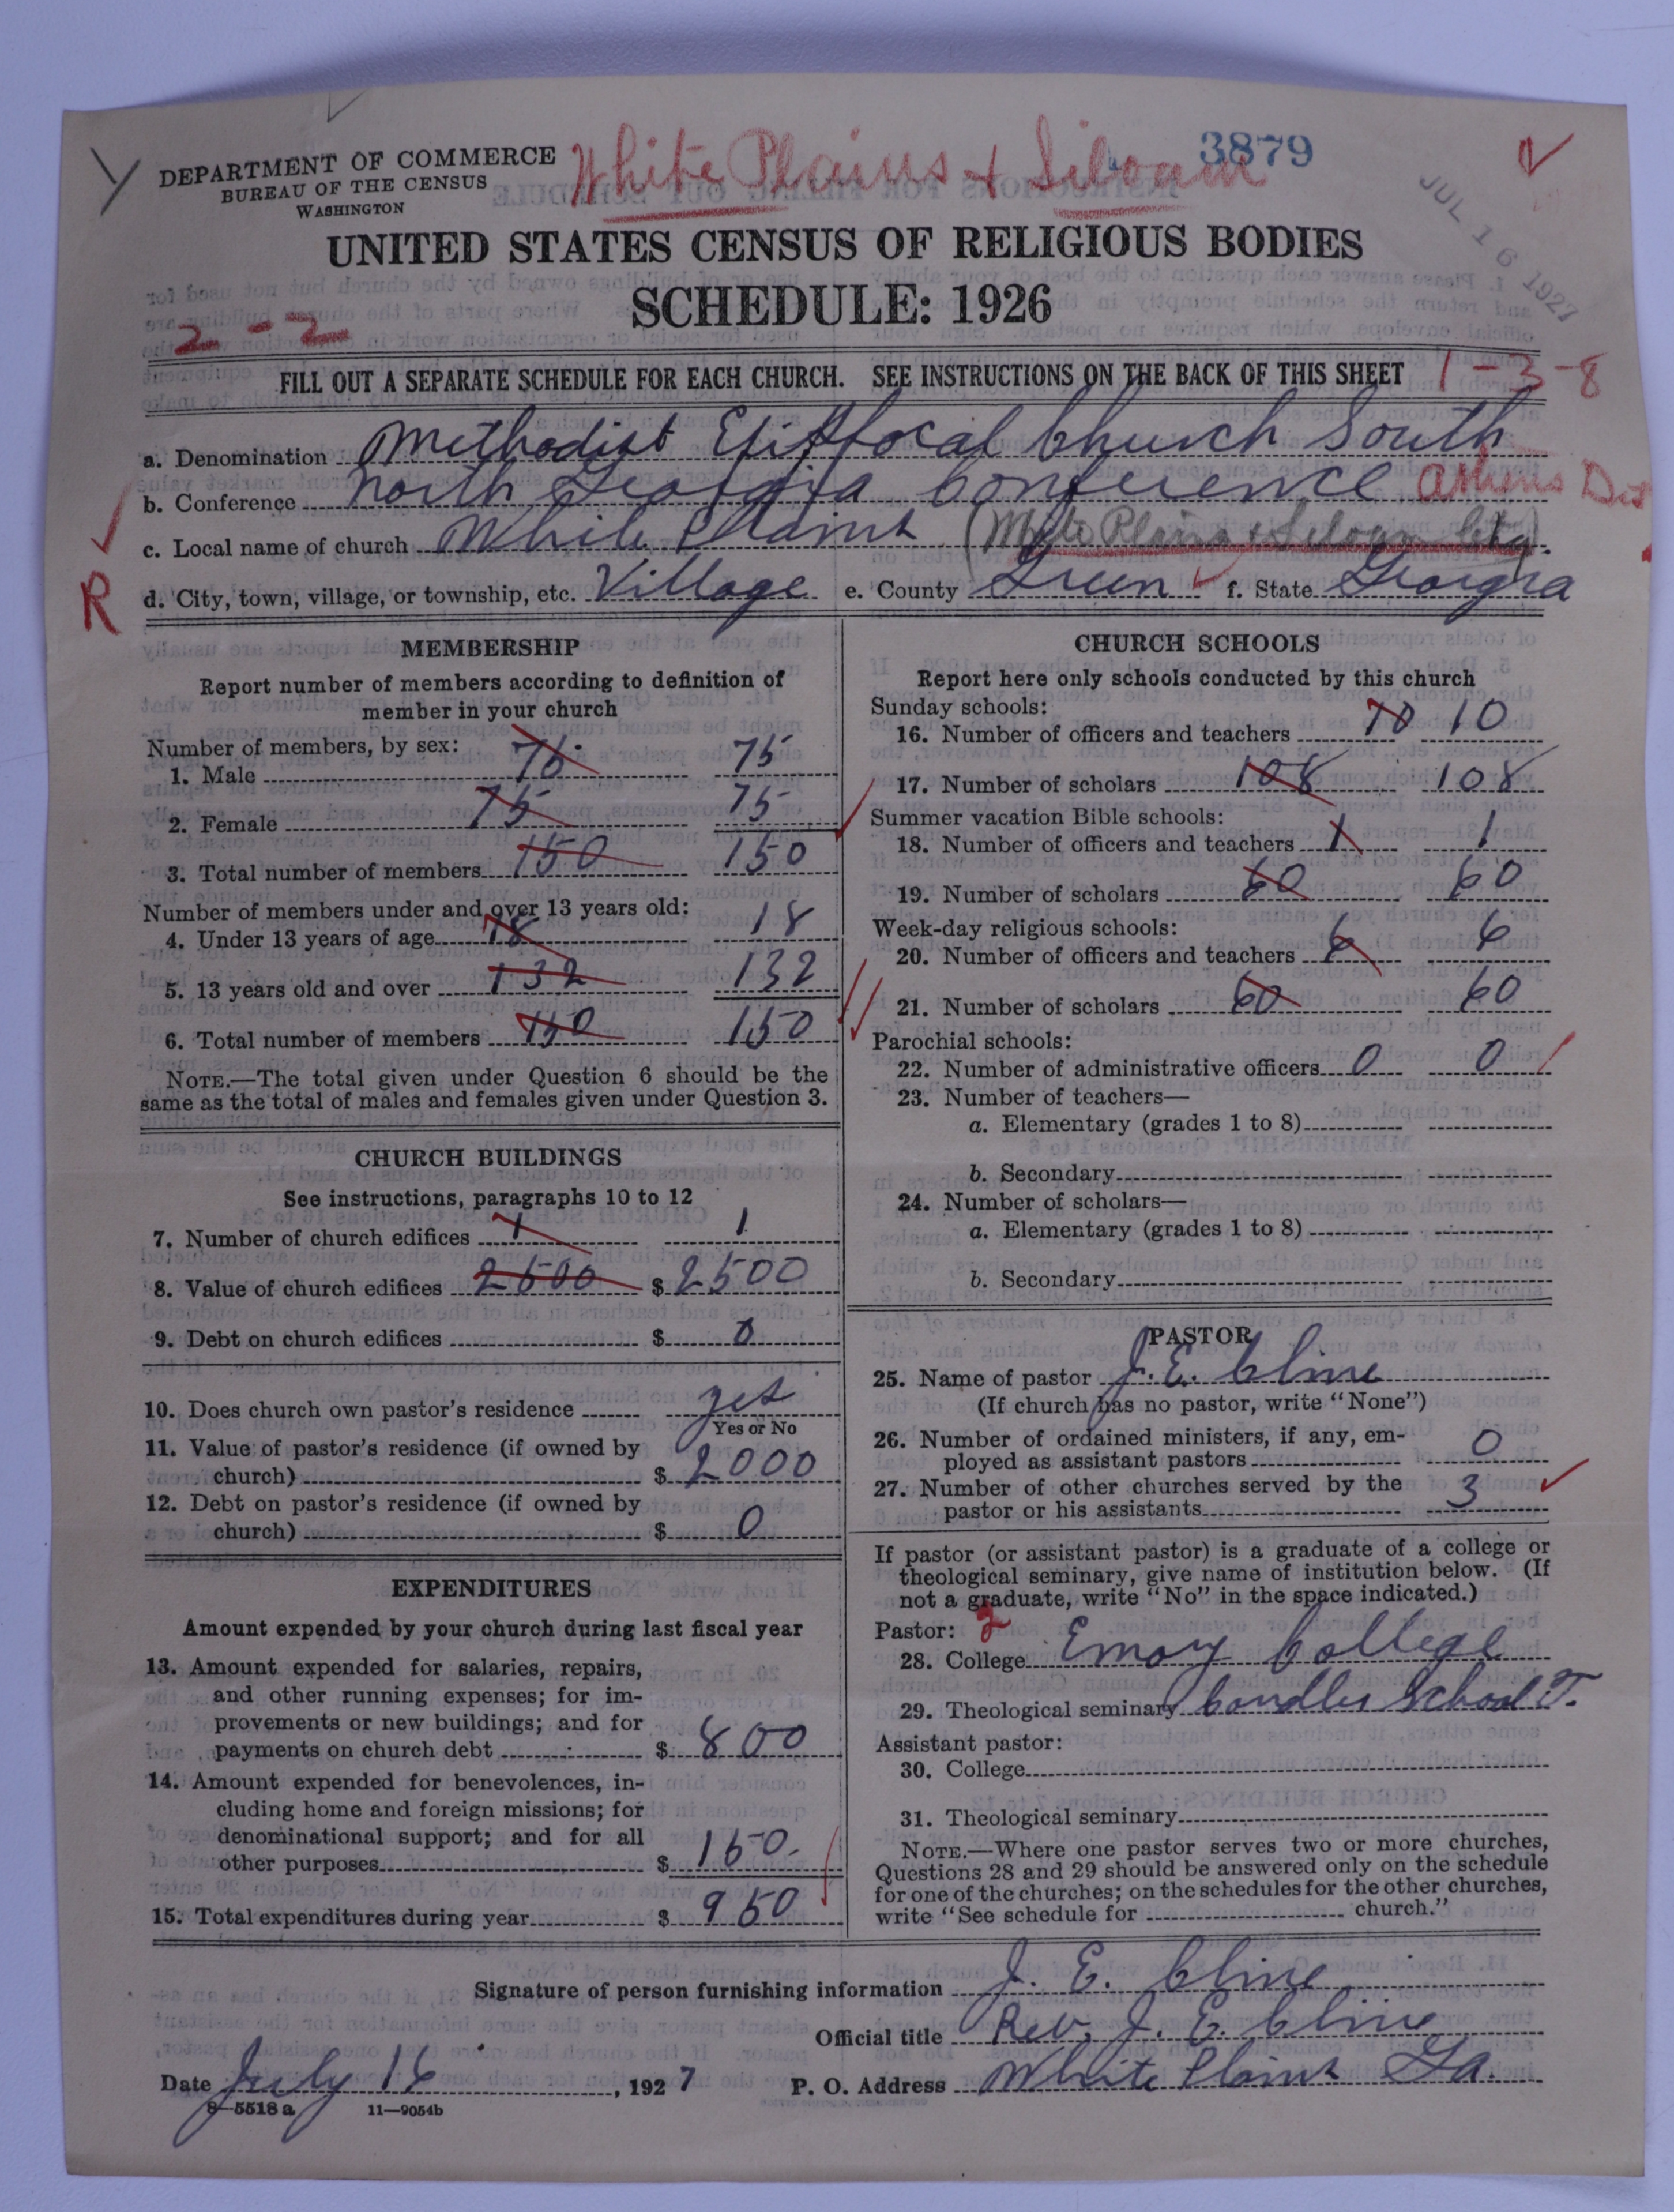 White Plains + Siloam
3879
DEPARTMENT OF COMMERCE
BUREAU OF THE CENSUS
WASHINGTON
JUL 16 1927
UNITED STATES CENSUS OF RELIGIOUS BODIES
SCHEDULE: 1926
2 - 2
FILL OUT A SEPARATE SCHEDULE FOR EACH CHURCH. SEE INSTRUCTIONS ON THE BACK OF THIS SHEET 1-3-8
a. Denomination Methodist Episcopal Church South
b. Conference North Georgia Conference Athens Dist
c. Local name of church White Plains (White Plains & Siloam
R
d. City, town, village, or township, etc. Village e. County Green f. State Georgia
MEMBERSHIP
Report number of members according to definition of
member in your church
Number of members, by sex:
1. Male 75 75
2. Female 75 75
3. Total number of members 150 150
Number of members under and over 13 years old:
4. Under 13 years of age 18 18
5. 13 years old and over 132 132
6. Total number of members 150 150
NOTE.—The total given under Question 6 should be the
same as the total of males and females given under Question 3.
CHURCH BUILDINGS
See instructions, paragraphs 10 to 12
7. Number of church edifices 1 1
8. Value of church edifices 2500 $ 2500
9. Debt on church edifices $ 0
10. Does church own pastor's residence yes
Yes or No
11. Value of pastor's residence (if owned by
church) $ 2000
12. Debt on pastor's residence (if owned by
church) $ 0
EXPENDITURES
Amount expended by your church during last fiscal year
13. Amount expended for salaries, repairs,
and other running expenses; for im-
provements or new buildings; and for
payments on church debt $ 800
14. Amount expended for benevolences, in-
cluding home and foreign missions; for
denominational support; and for all
other purposes $ 150
15. Total expenditures during year $ 950
CHURCH SCHOOLS
Report here only schools conducted by this church
Sunday schools:
16. Number of officers and teachers 10 10
17. Number of scholars 108 108
Summer vacation Bible schools:
18. Number of officers and teachers 1 1
19. Number of scholars 60 60
Week-day religious schools:
20. Number of officers and teachers 6 6
21. Number of scholars 60 60
Parochial schools:
22. Number of administrative officers 0 0
23. Number of teachers—
a. Elementary (grades 1 to 8)
b. Secondary
24. Number of scholars—
a. Elementary (grades 1 to 8)
b. Secondary
PASTOR
25. Name of pastor J. E. Cline
(If church has no pastor, write "None")
26. Number of ordained ministers, if any, em-
ployed as assistant pastors 0
27. Number of other churches served by the
pastor or his assistants 3
If pastor (or assistant pastor) is a graduate of a college or
theological seminary, give name of institution below. (If
not a graduate, write "No" in the space indicated.)
Pastor: 2
28. College Emory College
29. Theological seminary Candler School T.
Assistant pastor:
30. College
31. Theological seminary
NOTE.—Where one pastor serves two or more churches,
Questions 28 and 29 should be answered only on the schedule
for one of the churches; on the schedules for the other churches,
write "See schedule for church."
Signature of person furnishing information J. E. Cline
Official title Rev. J. E. Cline
Date July 16, 1927 P. O. Address White Plains Ga.
8-5518 a 11-9054b